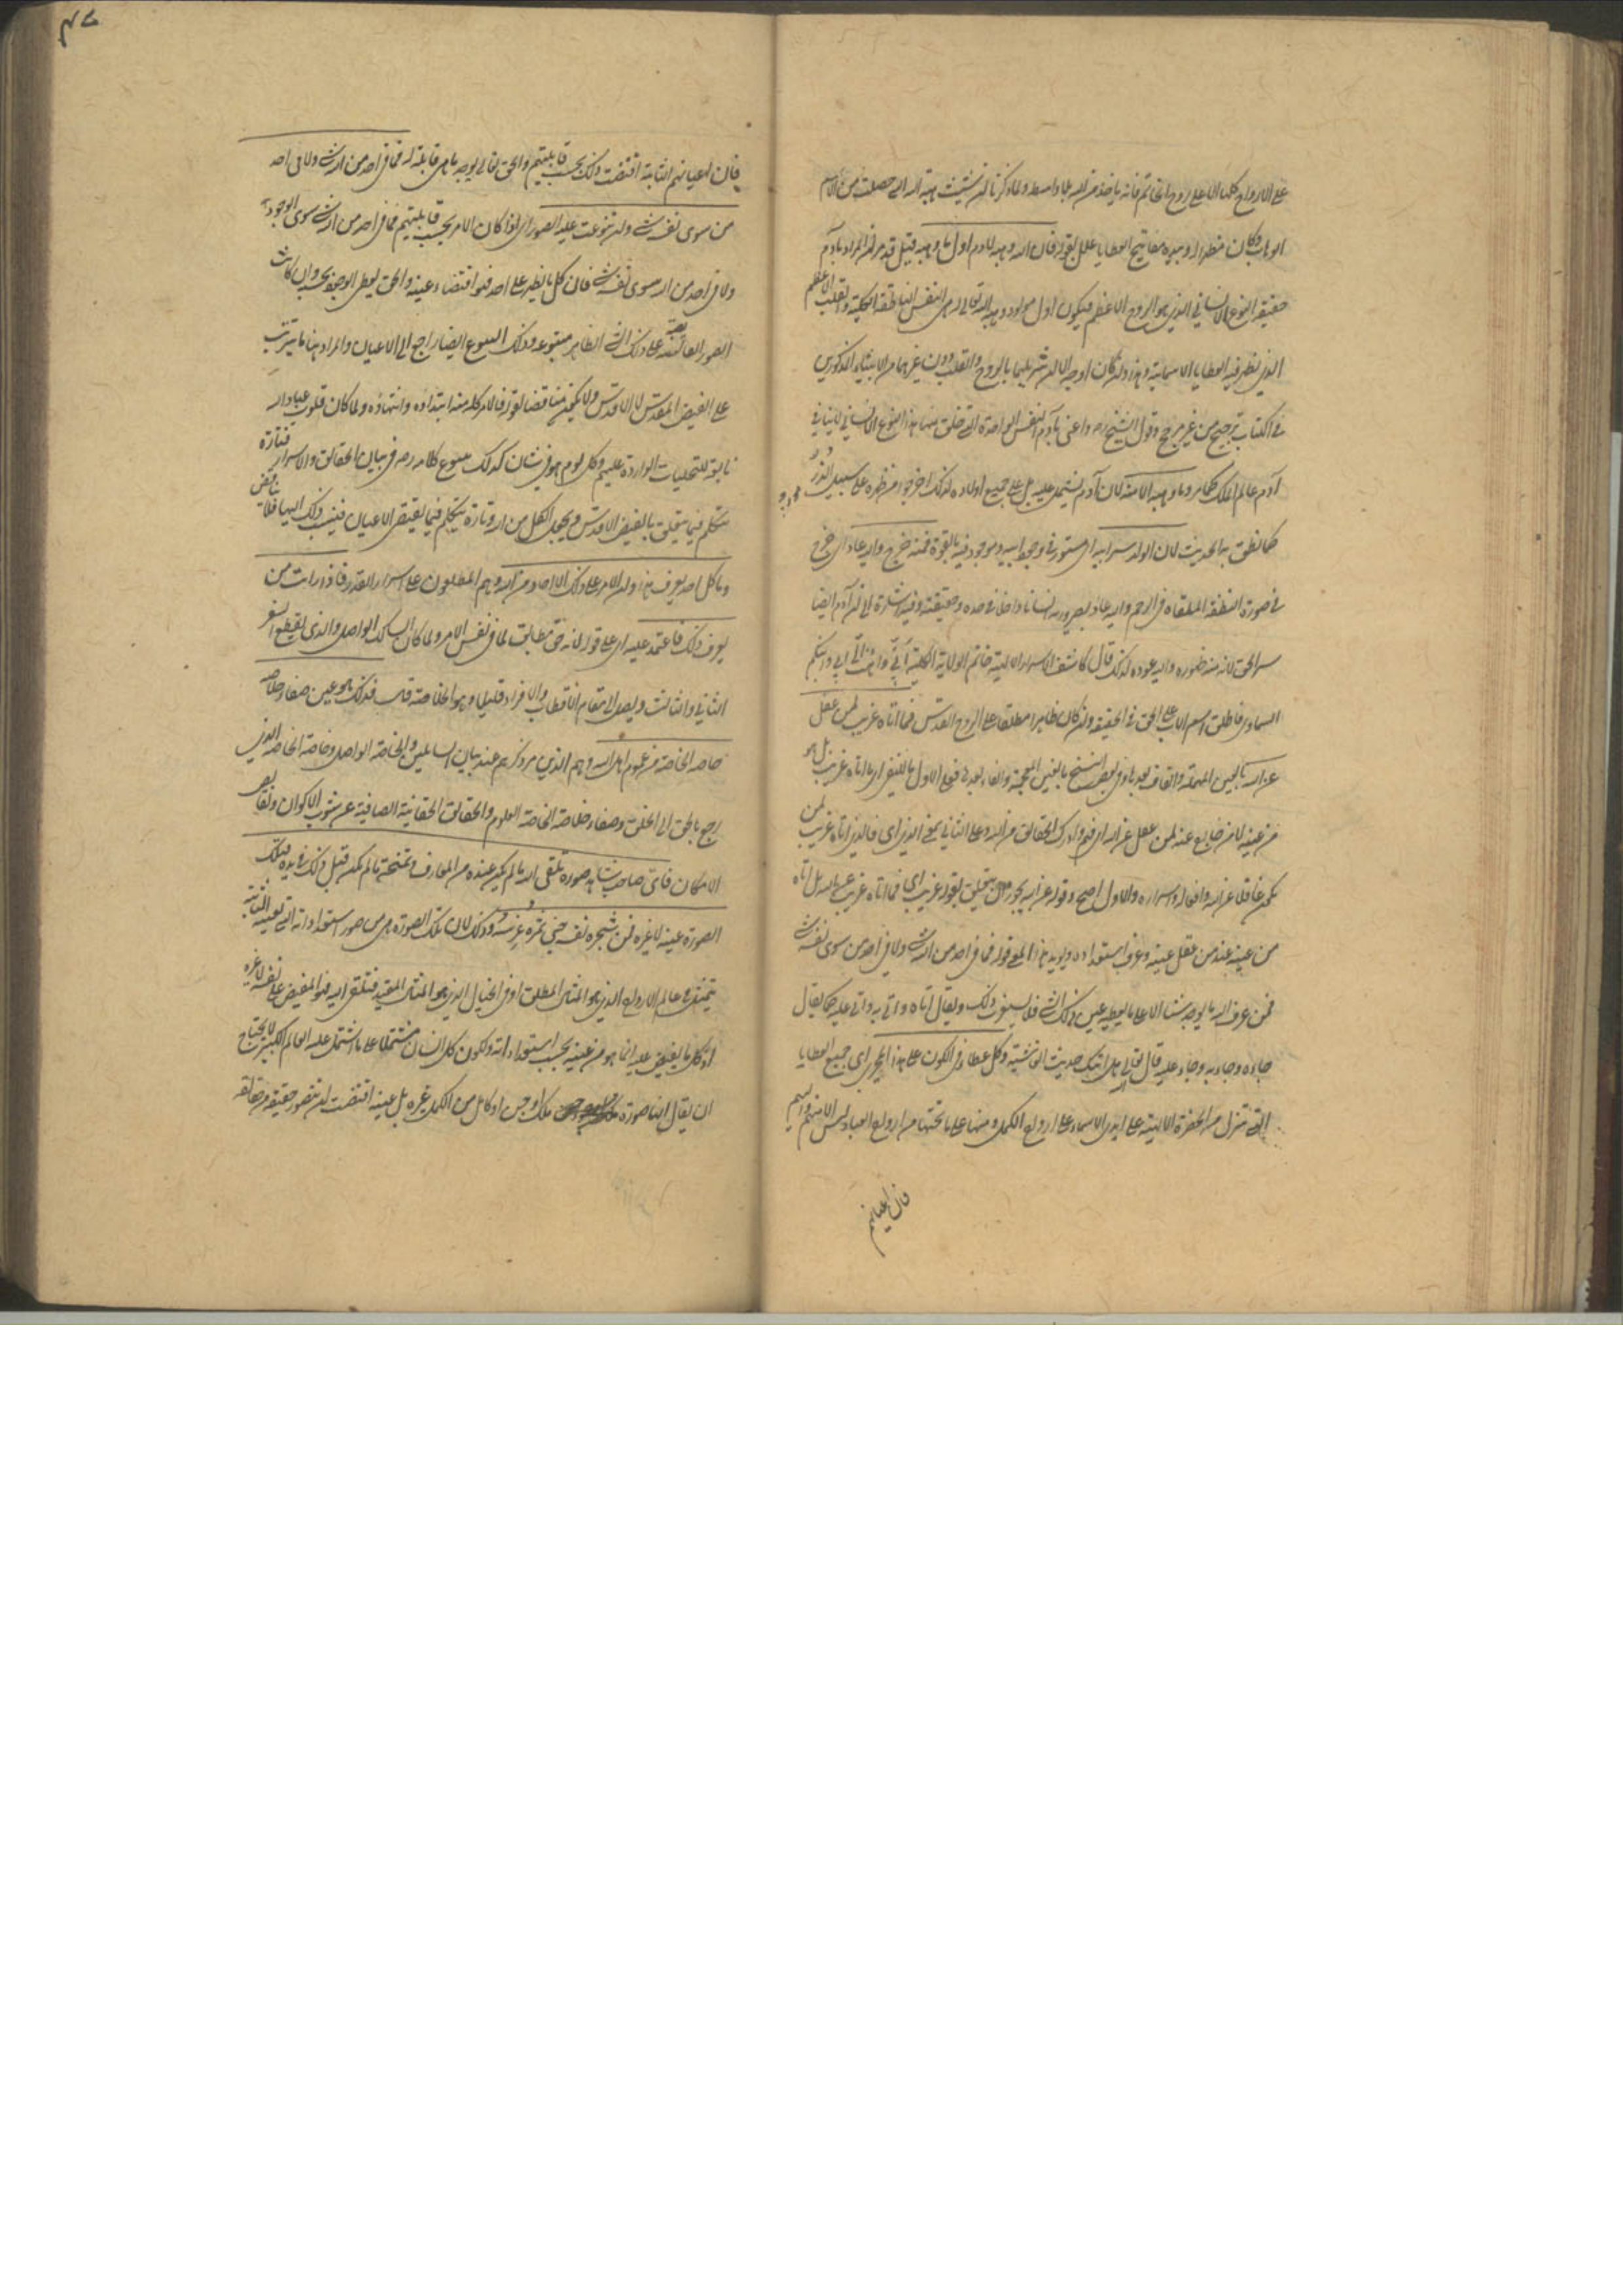 على الارواح كلها الا على روح الخاتم فانه ياخذ من الله بلا واسطه ولما ذكر ان شيث هبة الله التي حصلت من الاسم
الوهاب وكان مظهرا له وبيده مفاتيح العطايا علل بقوله فان الله وهبه لادم اول ما وهبه قيل قد مر ان المراد بآدم
حقيقة النوع الانساني الذي هو الروح الاعظم فيكون اول مولود وهبه الله تعالى له هى النفس الناطقة الكلية والقلب الاعظم
الذي يظهر فيه العطايا الاسمائية وهذا وان كان له وجه الا ان شر بليها بالروح والقلب دون غيرهما من الانبياء المذكورين
في الكتاب ترجيح من غير مرجح وقول الشيخ ره واعني بآدم النفس الواحدة التي خلق منها هذا النوع الانساني لا ينافي
آدم عالم الملك كما مر وما وهبه الا منه لان آدم يشتمل عليه بل على جميع اولاده لذلك اخرجوا من ظهره على سبيل الذر
كما نطق به الحديث لان الولد سر ابيه اى مستور في وجود ابيه وموجود فيه بالقوة فمنه خرج واليه عاد اى خرج
في صورة النطفة الملقاة في الرحم واليه عاد بصيرورته انسانا داخلا في حده وحقيقته وفيه اشارة الى ان آدم ايضا
سر الحق لانه منه ظهوره واليه عوده لذلك قال كاشف الاسرار الالهية خاتم الولاية الكلية انى ذاهب الى ابى وابيكم
السماوى فاطلق اسم الاب على الحق في الحقيقة وان كان ظاهرا مطلقا على الروح القدس فما اتاه غريب لمن عقل
عن الله بالعين المهملة والقاف بعدها وفي بعض النسخ بالغين المعجمة والفاء بعدها فعلى الاول ما للنفى اى ما اتاه غريب بل هو
من عينه لا من خارج عنه لمن عقل عن الله اى فهم وادرك الحقائق من الله وعلى الثاني بمعنى الذي اى فالذي اتاه غريب لمن
يكون غافلا عن الله وافعاله واسراره والاول اصح وقوله عن الله يجوز ان يتعلق بقوله غريب اى فما اتاه غريب عن الله بل اتاه
من عينه عند من يعقل عينه وعرف استعداده ويؤيد هذا المعنى قوله فما في احد من الله شئ ولا في احد من سوى نفسه شئ
فمن عرف ان الله ما يوجد شيئا الا على ما يعطيه عين ذلك الشئ فلا يستغرب ذلك ويقال اتاه واتى به واتى عليه كما يقال
جاءه وجاء به وجاء عليه قال تعالى هل اتيك حديث الغاشية وكل عطاء في الكون على هذا المجرى اى جميع العطايا
التي تنزل من الحضرة الالهية على ايدى الاسماء على ارواح الكمل ومنها على ما تحتها من ارواح العباد ليس الا منهم واليهم
فان اعيانهم
فان اعيانهم الثابتة اقتضت ذلك بحسب قابليتهم والحق تعالى يوجد ما هى قابلة له فما في احد من الله شئ ولا في احد
من سوى نفسه شئ وان تنوعت عليه الصور اى اذا كان الامر بحسب قابليتهم فما في احد من الله شئ سوى الوجود
ولا في احد من الله سوى نفسه شئ فان كل ما يظهر على احد فهو اقتضاء عينه والحق يعطى الوجود بحسبه وان كانت
الصور الفائضة على ذلك الشئ الظاهر متنوعة وذلك التنوع ايضا راجع الى الاعيان والمراد هنا ما يترتب
على الفيض المقدس لا الاقدس ولا يكون مناقضا لقوله فالامر كله منه ابتداؤه وانتهاؤه ولما كان قلوب عباد الله
تابعة للتجليات الواردة عليهم وكل يوم هو في شان كذلك يتنوع كلامه ره في بيان الحقائق والاسرار فتارة
يتكلم فيما يتعلق بالفيض الاقدس ويجعل الكل من الله وتارة يتكلم فيما يقتضى الاعيان فينسب ذلك اليها فلا يناقض
وما كل احد يعرف هذا وان الامر على ذلك الا احاد من اهل الله وهم المطلعون على اسرار القدر فاذا رايت من
يعرف ذلك فاعتمد عليه اى على قوله لانه حق مطابق لما في نفس الامر ولما كان السالك الواصل والذي يقطع السفر
الثاني والثالث ويصل الى مقام الاقطاب والافراد قليلا وهو الخلاصة قال فذلك هو عين صفاء خلاصة
خاصة الخاصة من عموم اهل الله وهم الذي مر ذكرهم عند بيان السائلين والخاصة الواصل وخاصة الخاصة الذي
رجع بالحق الى الخلق وصفاء خلاصة الخاصة العلوم والحقائق الحقانية الصافية عن شوب الاكوان ونقايص
الامكان فاى صاحب شاهد صورة تلقى اليه ما لم يكن عنده من المعارف وتمنحه ما لم يكن قبل ذلك في يده فتلك
الصورة عينه لا غيره فمن شجرة نفسه جنى ثمرة غرسه وذلك لان تلك الصورة هى من صور استعداداته التي لعينه الثابتة
يتمثل في عالم الارواح الذي هو المثال المطلق او في الخيال الذي هو المثال المقيد فتلقى اليه فهو المفيض على نفسه لا غيره
اذ كل ما يفيض عليه انما هو من عينه بحسب استعداداته ولكون كل انسان مشتملا على ما اشتمل عليه العالم الكبير لا يحتاج
ان يقال انها صورة ملك او جن او كامل من الكمل غيره بل عينه اقتضت ان تتصور حقيقة من حقائقه